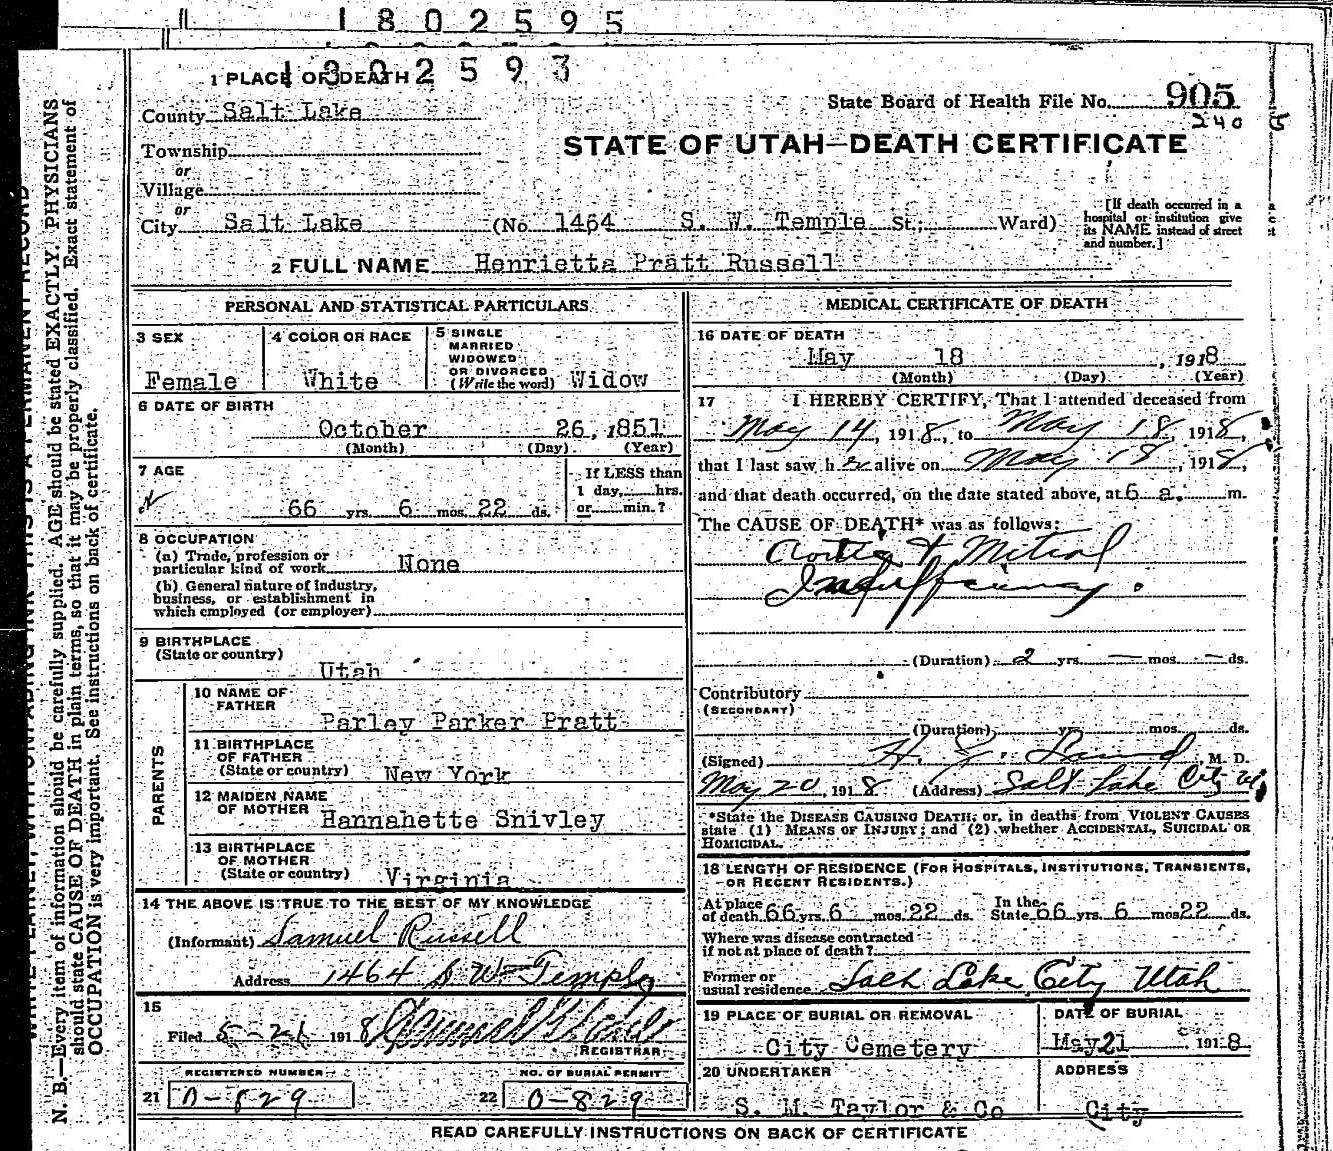 1802595
1302593
1 PLACE OF DEATH
State Board of Health File No. 905
240
County Salt Lake
STATE OF UTAH—DEATH CERTIFICATE
Township
or
Village
or
City Salt Lake (No 1464 S. W. Temple St.; Ward)
[If death occurred in a
hospital or institution give
its NAME instead of street
and number.]
2 FULL NAME Henrietta Pratt Russell
PERSONAL AND STATISTICAL PARTICULARS
3 SEX
Female
4 COLOR OR RACE
White
5 SINGLE
MARRIED
WIDOWED
OR DIVORCED
(Write the word) Widow
6 DATE OF BIRTH
October 26, 1851
(Month) (Day) (Year)
7 AGE
66 yrs. 6 mos. 22 ds.
If LESS than
1 day, hrs.
or min.?
8 OCCUPATION
(a) Trade, profession or
particular kind of work None
(b) General nature of industry,
business, or establishment in
which employed (or employer)
9 BIRTHPLACE
(State or country)
Utah
PARENTS
10 NAME OF
FATHER
Parley Parker Pratt
11 BIRTHPLACE
OF FATHER
(State or country) New York
12 MAIDEN NAME
OF MOTHER Hannahette Snivley
13 BIRTHPLACE
OF MOTHER
(State or country) Virginia
14 THE ABOVE IS TRUE TO THE BEST OF MY KNOWLEDGE
(Informant) Samuel Russell
Address 1464 S W Temple
15
Filed 5-21 1918
REGISTRAR
REGISTERED NUMBER
21 0-829
NO. OF BURIAL PERMIT
22 0-829
MEDICAL CERTIFICATE OF DEATH
16 DATE OF DEATH
May 18, 1918
(Month) (Day) (Year)
17 I HEREBY CERTIFY, That I attended deceased from
May 14, 1918, to May 18, 1918,
that I last saw her alive on May 18, 1918,
and that death occurred, on the date stated above, at 6 a. m.
The CAUSE OF DEATH* was as follows:
Aortic & Mitral
Insufficiency.
(Duration) 2 yrs. — mos. — ds.
Contributory
(SECONDARY)
(Duration) yrs. mos. ds.
(Signed) M. D.
May 20, 1918 (Address) Salt Lake City Ut
*State the DISEASE CAUSING DEATH; or, in deaths from VIOLENT CAUSES
state (1) MEANS OF INJURY; and (2) whether ACCIDENTAL, SUICIDAL OR
HOMICIDAL.
18 LENGTH OF RESIDENCE (FOR HOSPITALS, INSTITUTIONS, TRANSIENTS,
OR RECENT RESIDENTS.)
At place
of death 66 yrs. 6 mos. 22 ds.
In the
State 66 yrs. 6 mos. 22 ds.
Where was disease contracted
if not at place of death?
Former or
usual residence Salt Lake City Utah
19 PLACE OF BURIAL OR REMOVAL
City Cemetery
DATE OF BURIAL
May 21 1918
20 UNDERTAKER
S. M. Taylor & Co
ADDRESS
City
READ CAREFULLY INSTRUCTIONS ON BACK OF CERTIFICATE
N. B.—Every item of information should be carefully supplied. AGE should be stated EXACTLY. PHYSICIANS
should state CAUSE OF DEATH in plain terms, so that it may be properly classified. Exact statement of
OCCUPATION is very important. See instructions on back of certificate.